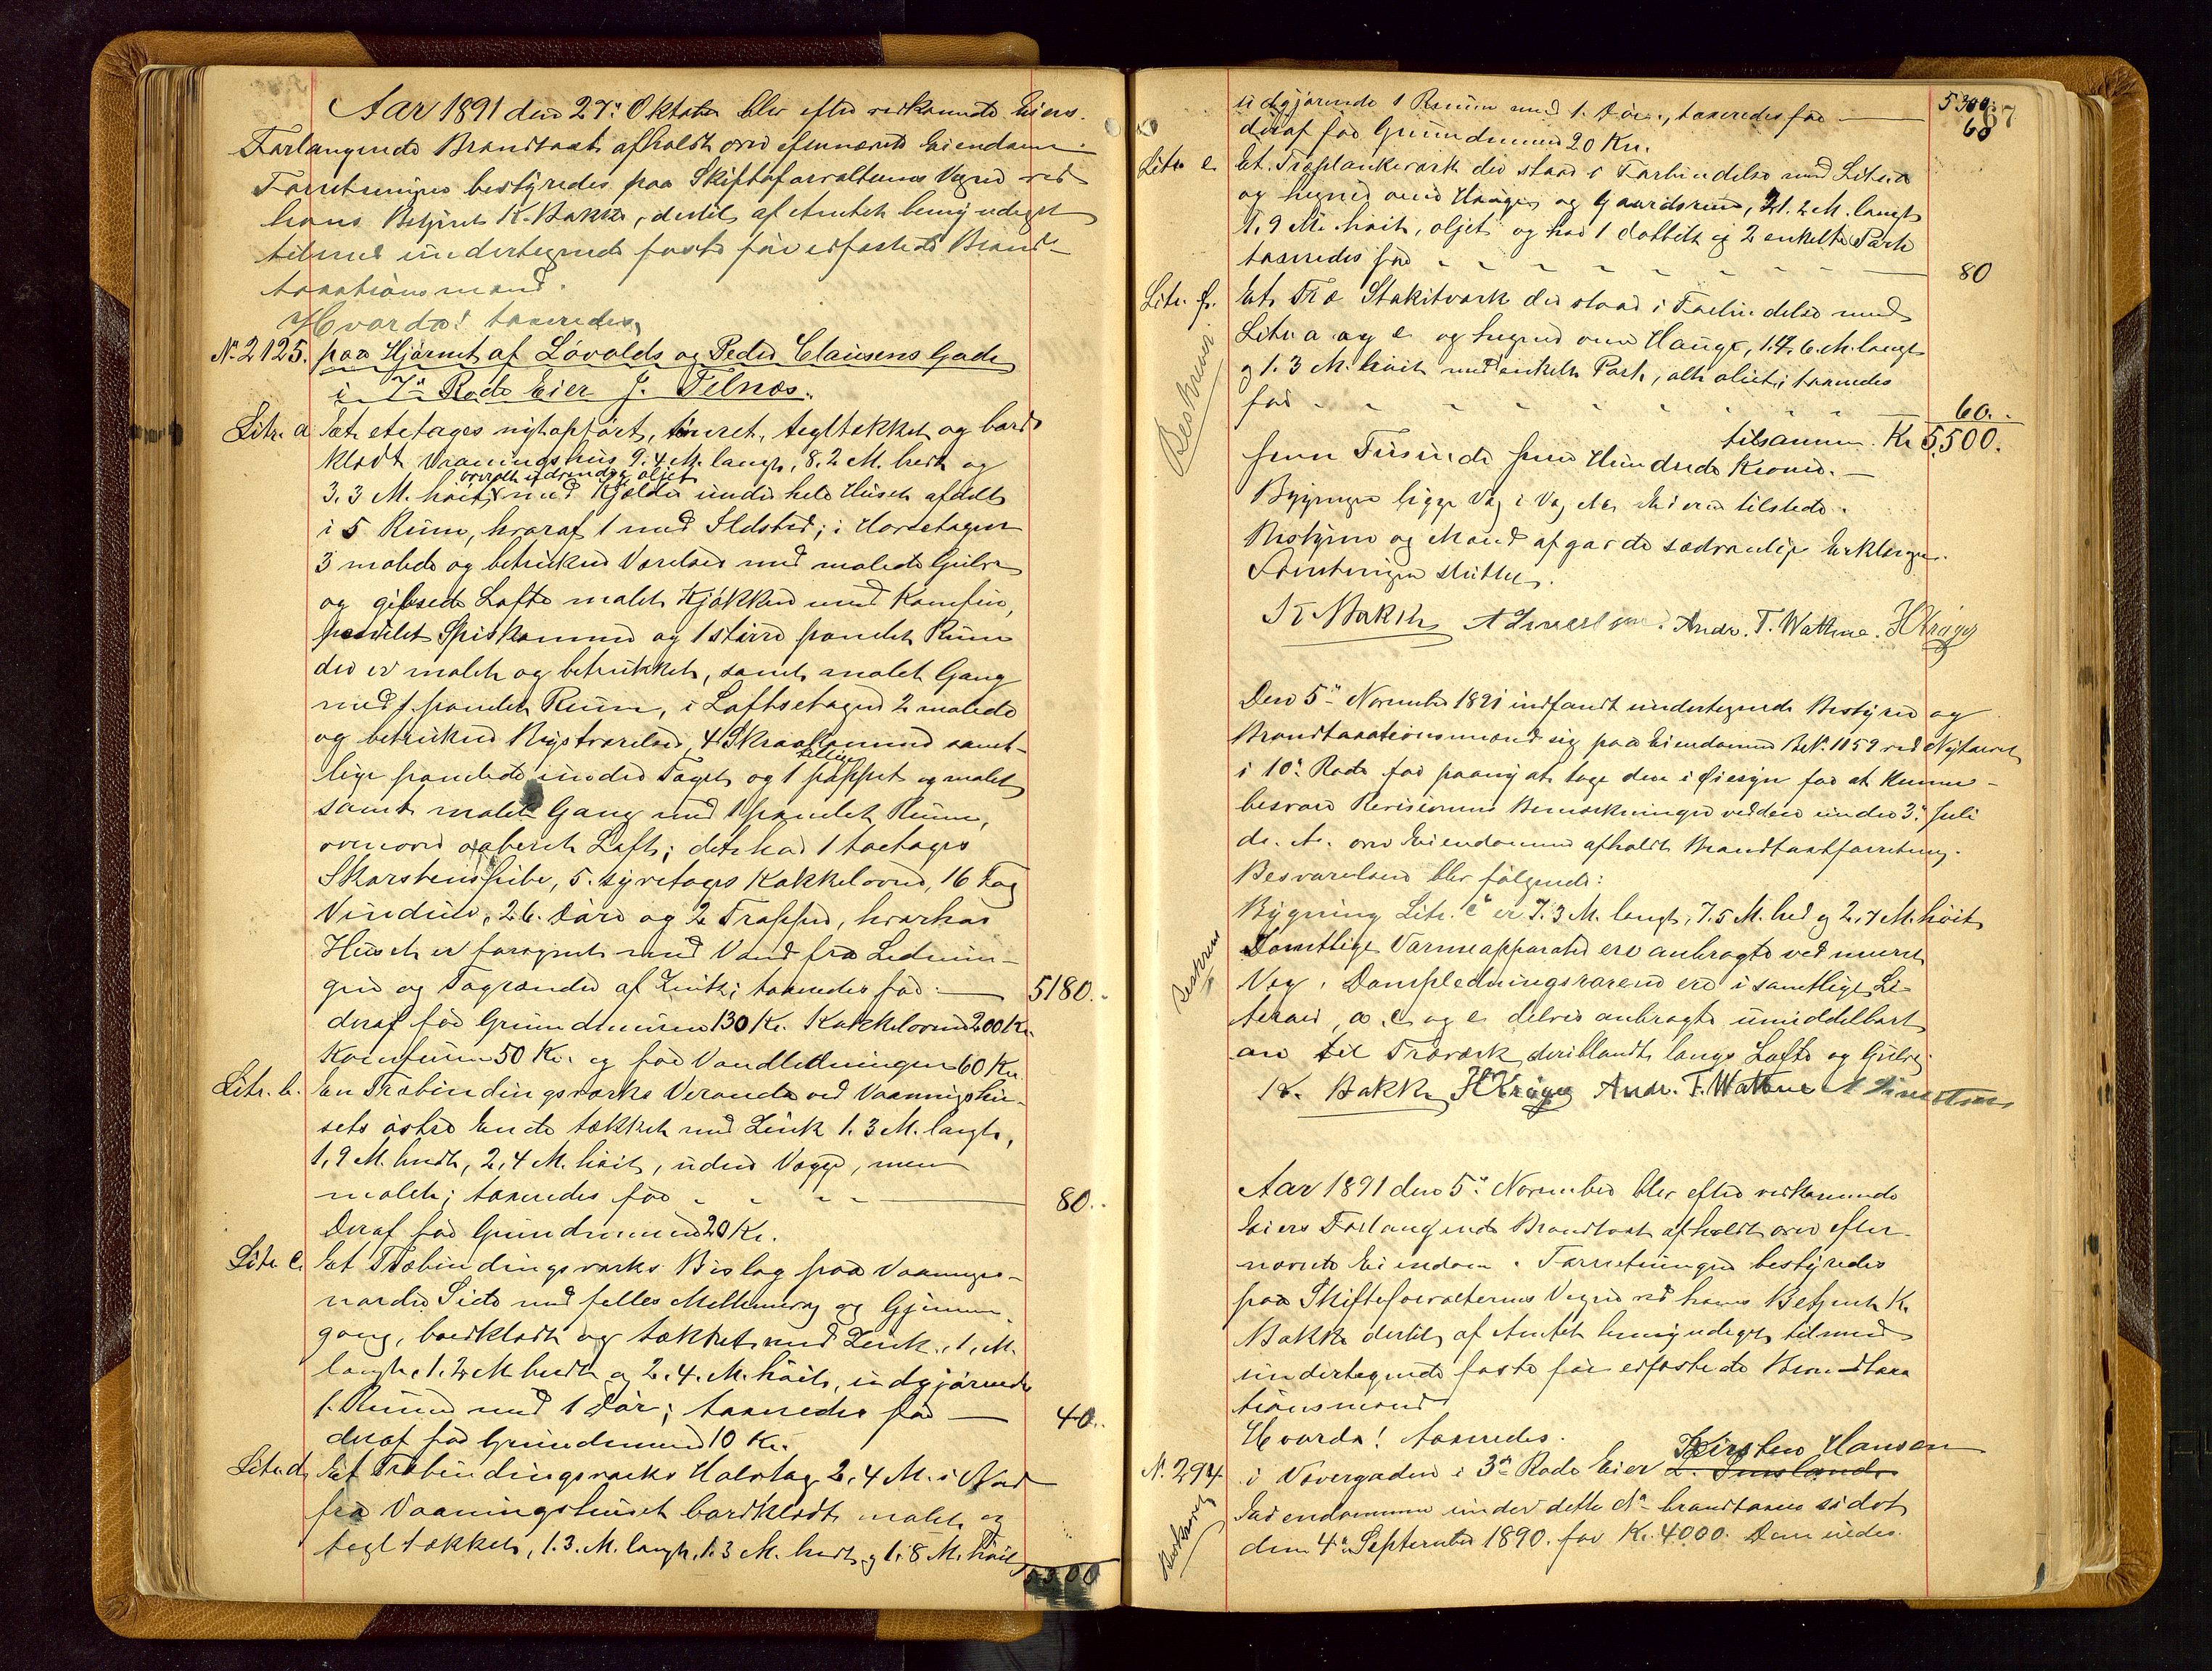 Aar 1891 den 27de Oktober blev efter vedkommende Eiers
Forlangende Brandtaxt afholdt over efternævnte Eiendom.
Forretningen bestyredes paa Skifteforvalterens Vegne ved
hans Betjent K. Bakke, dertil af Amtet bemyndiget
tilmed undertegnede faste før edfæstede Brand-
taxationsmænd.
Hvorda! taxeredes,
No 2125. paa Hjørnet af Løvolds og Peder Clausens Gade
i 7de Rode Eier J. Tilnes.
Litr. a Et etetages nyt opført, tømret, tegltækket og bord-
klædt Vaaningshus 9.4 M. langt, 8.2 M. bredt og
overalt udvendig oljet
3.3 M. høit, med Kjelder under hele Huset afdelt
i 5 Rum, hvoraf 1 med Ildsted; i Hovedetagen
3 malede og betrukne Værelser med malede Gulve
og gibsede Lofte malet Kjøkken med Komfur,
panelet Spiskammer og 1 større panelet Rum
der er malet og betrukket, samt malet Gang
med 1 panelet Rum, i Loftsetagen 2 malede
og betrukne Kvistværelser, 4 Skraakammer samt-
lige panelede under Taget og 1 pappet og malet
samt malet Gang med 1 panelet Rum,
ovenover ubenet Loft; det har 1 toetages
Skorstenspibe, 5. tyretages Kakkelovne, 16 Fag
Vinduer, 26. Døre og 2 Trapper, hvorhos
Huset er forsynet med Vand fra Lednin-
gen og Tagrender af Zink; taxeredes for — 5180..
deraf for Grundmuren 130 Kr. Kakkelovne 200 Kr.
Komfuren 50 Kr. og for Vandledningen 60 Kr.
Litr. b. En Træbindingsværks Veranda ved Vaaningshu-
sets østre Ende tækket med Zink 1.3 M. langt,
1,9 M. bredt, 2,4 M. høit, uden Vægge, men
malet; taxeredes for — 80..
Deraf for Grundmuren 20 Kr.
Litr c. Et Træbindingsværks Bislag paa Vaaningens
nordre Side med fælles Mellemvæg og Gjennem-
gang, bordklædt og tækket med Zink, 1, M.
langt, 1.2 M bredt og 2.4. M. høit, udgjørende
1. Rum med 1 Dør; taxeredes for — 40..
deraf for Grundmuren 10 Kr.
Litr d. Et Træbindingsværks Halvtag 2,4 M. i Nord
fra Vaaningshuset bordklædt malet og
tegltækket, 1.3. M. langt, 1.3 M. bredt og 1.8 M. høit
5300
67
udgjørende 1 Rum med 1. Dør., taxeredes for — 5300.
60
deraf for Grundmuren 20 Kr.
Litr e. Et. Træplankeværk der staar i Forbindelse med Litr. a
og hegner om Haugen og Gaardsrum, 21.2 M. langt
1,9 M. høit, oljet og har 1 dobbelt og 2 enkelte Porte
taxeredes for — 80
Litr. f. Et Træ Stakitværk der staar i Forbindelse med
Litr a og e og hegner om Hauge, 17,6. M. langt
og 1.3 M. høit med enkelt Port, alt oliet; taxeredes
for — 60..
tilsammen. Kr 5,500.
fem Tusinde fem Hundrede Kroner.—
Bygningen ligger Væg i Væg. Eieren tilstede.
Bestyrer og Mænd afgav de sædvanlige Erklæringer.
Forretningen sluttet.
K Bakke Andr. T. Wathne. H Krøger
Beskreven
Den 5te November 1891 indfandt undertegnede Bestyrer og
Brandtaxationsmænd sig paa Eiendommen B. No. 1159 ved Nytorvet
i 10de Rode for paany at tage den i Øiesyn for at kunne
besvare Revisionens Bemærkninger ved den under 3de Juli
ds. A. over Eiendommen afholdt Brandtaxtforretning.
Besvarelsen blev følgende:
Bygning Litr. c er 7.3 M. langt, 7.5 M. bred og 2,7 M. høit
Samtlige Varmeapparater ere anbragte ved muret
Væg. Dampledningsrørene ere i samtlige Li-
teraer, a. c og e delvis anbragte umiddelbart
an til Træværk deriblandt langs Lofte og Gulve.
K. Bakke H Krøger Andr. T. Wathne
Beskreven
Aar 1891 den 5te November blev efter vedkommende
Eiers Forlangende Brandtaxt afholdt over efter-
nævnte Eiendom. Forretningen bestyredes
paa Skifteforvalterens Vegne ved hans Betjent K.
Bakke dertil af Amtet bemyndiget tilmed
undertegnede faste før edfæstede Brandtaxa
tionsmænd
Hvorda! taxeredes.
Kirsten Hansen
No. 294. i Novergaden i 3de Rode Eier
Eiendommen under dette No brandtaxeredes sidst
den 4de September 1890. for Kr. 4000. Denne nedes
Beskreven